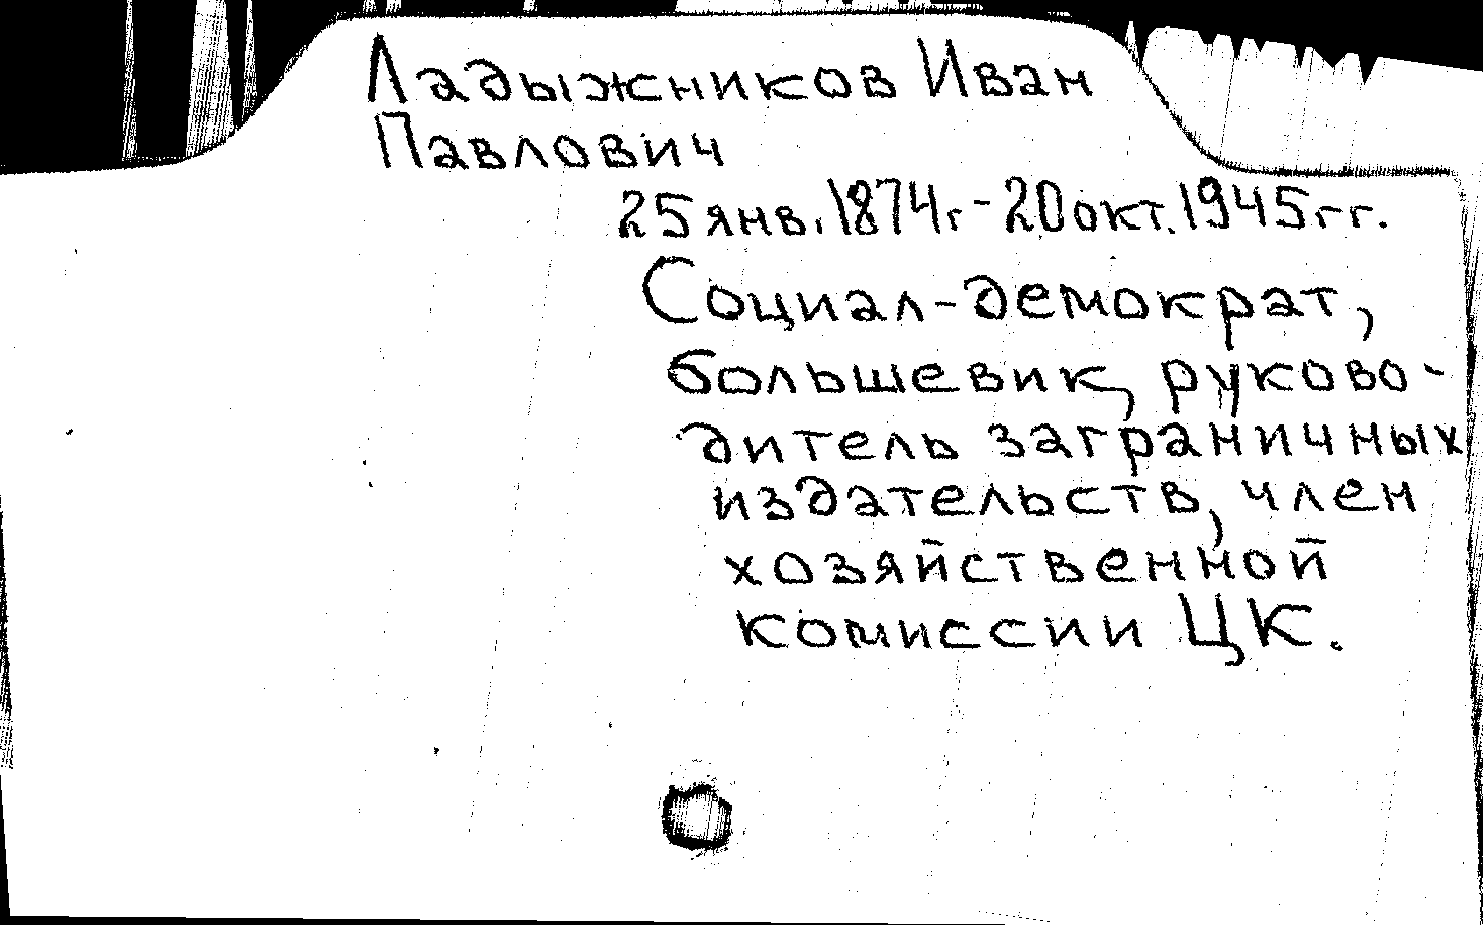 Ладыжников Иван
Павлович
25 янв. 1874г - 20 окт. 1945 гг.
Социал-демократ,
большевик, руково-
дитель заграничных
издательств, член
хозяйственной
комиссии ЦК.